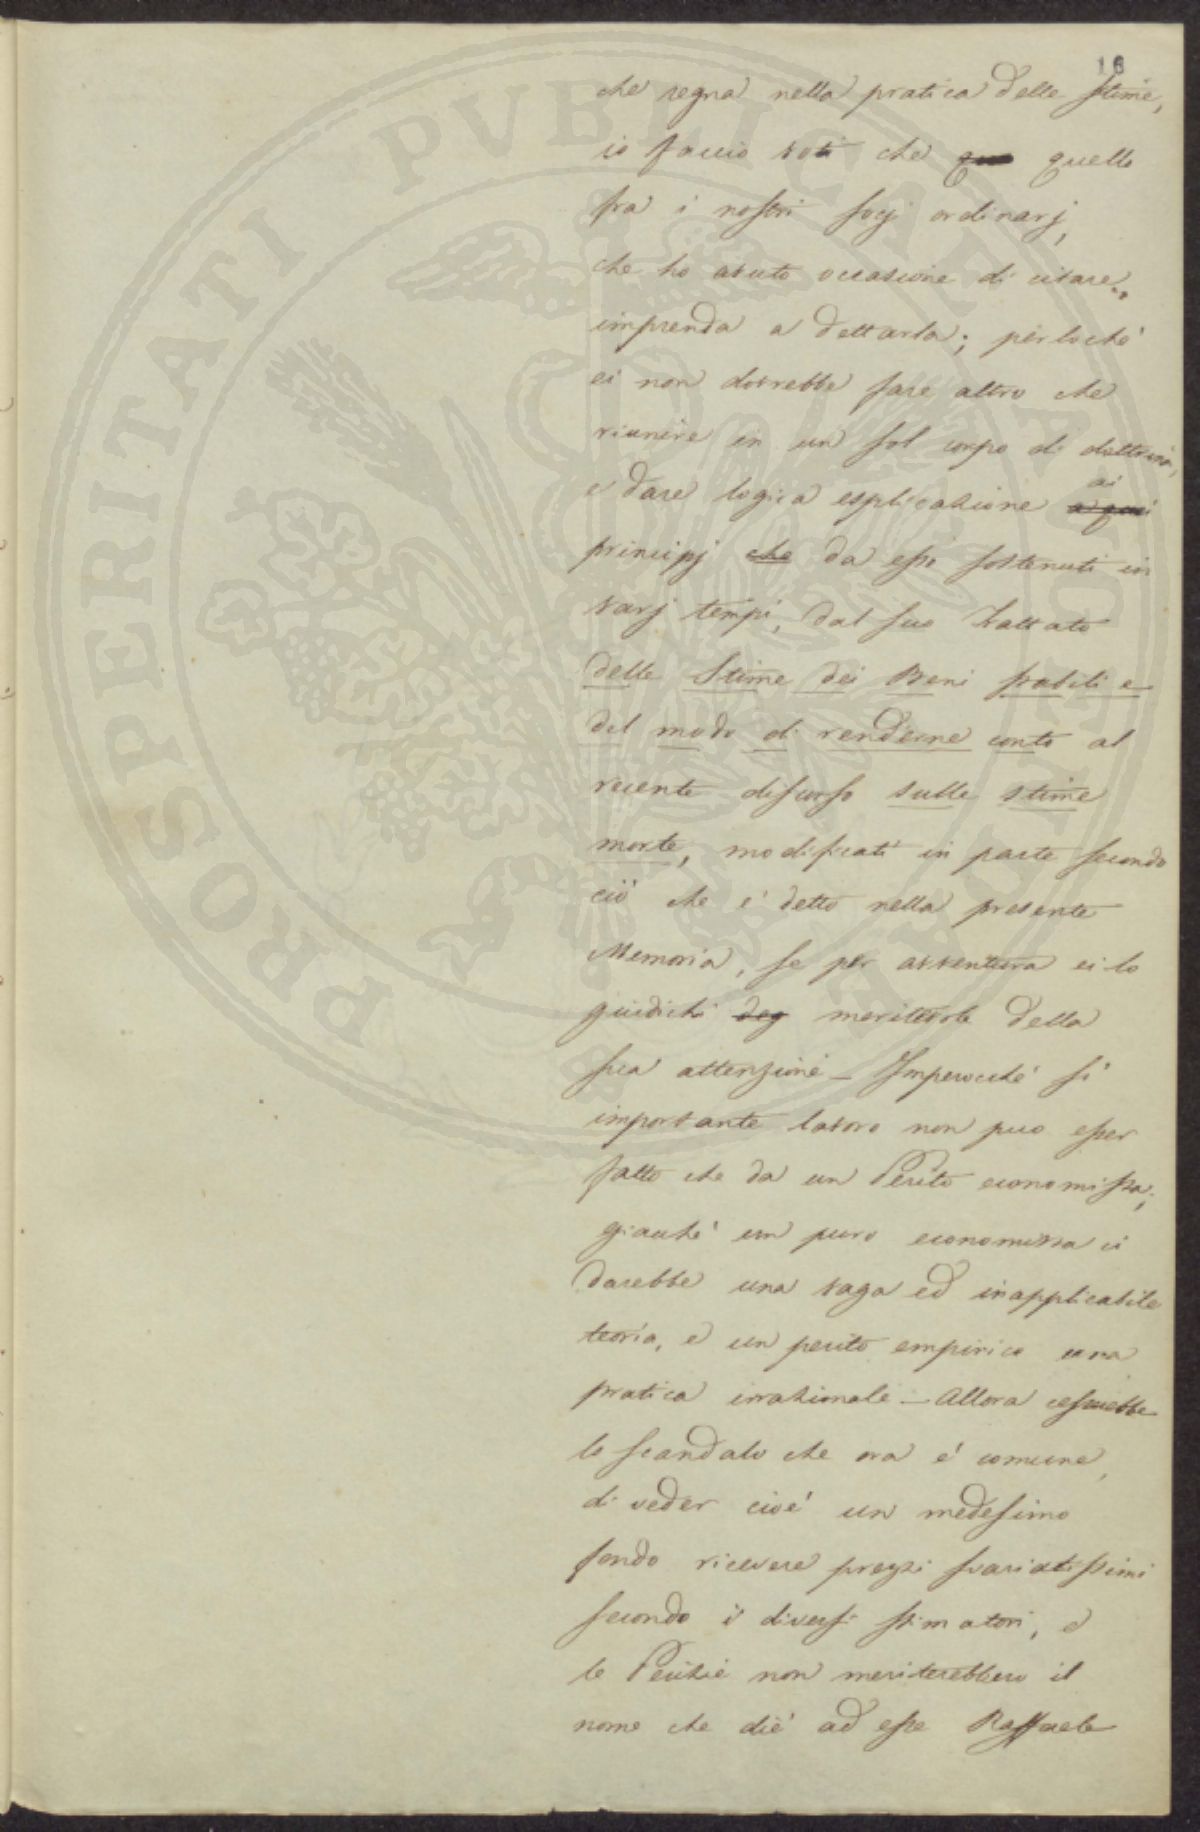 16
che regna nella pratica delle stime,
io faccio voti che quello
fra i nostri socj ordinarj,
che ho avuto occasione di citare,
imprenda a dettarla; perlochè
ei non dovrebbe fare altro che
riunire in un sol corpo di dottrina,
e dare logica esplicazione ai a quei
principj che da esso sostenuti in
varj tempi, dal suo Trattato
delle Stime dei Beni stabili e
del modo di renderne conto al
recente discorso sulle stime
morte, modificati in parte secondo
ciò che è detto nella presente
Memoria, se per avventura ei lo
giudichi deg meritevole della
sua attenzione – Imperocchè sì
importante lavoro non puo esser
fatto che da un Perito economista;
giacchè un puro economista ci
darebbe una vaga ed inapplicabile
teoria, e un perito empirico una
pratica irrazionale – Allora cesserebbe
lo scandalo che ora è comune,
di veder cioè un medesimo
fondo ricevere prezzi svariatissimi
secondo i diversi stimatori, e
le Perizie non meriterebbero il
nome che diè ad esse Raffaele
PROSPERITATI PVBLICAE AVGENDAE